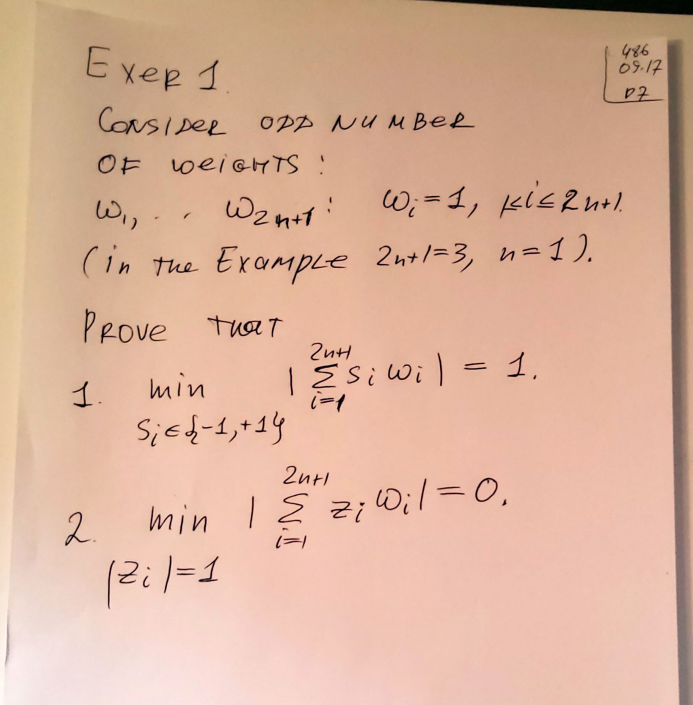 Exer 1.
486
09.17
D7
CONSIDER ODD NUMBER
OF WEIGHTS:
ω₁, . . ω₂ₙ₊₁: ωᵢ=1, 1≤i≤2n+1.
(in the Example 2n+1=3, n=1).
PROVE THAT
1. min |∑ sᵢ ωᵢ| = 1.
2n+1
i=1
Sᵢ∈{-1,+1}
2. min |∑ zᵢ ωᵢ| = 0.
2n+1
i=1
|zᵢ|=1